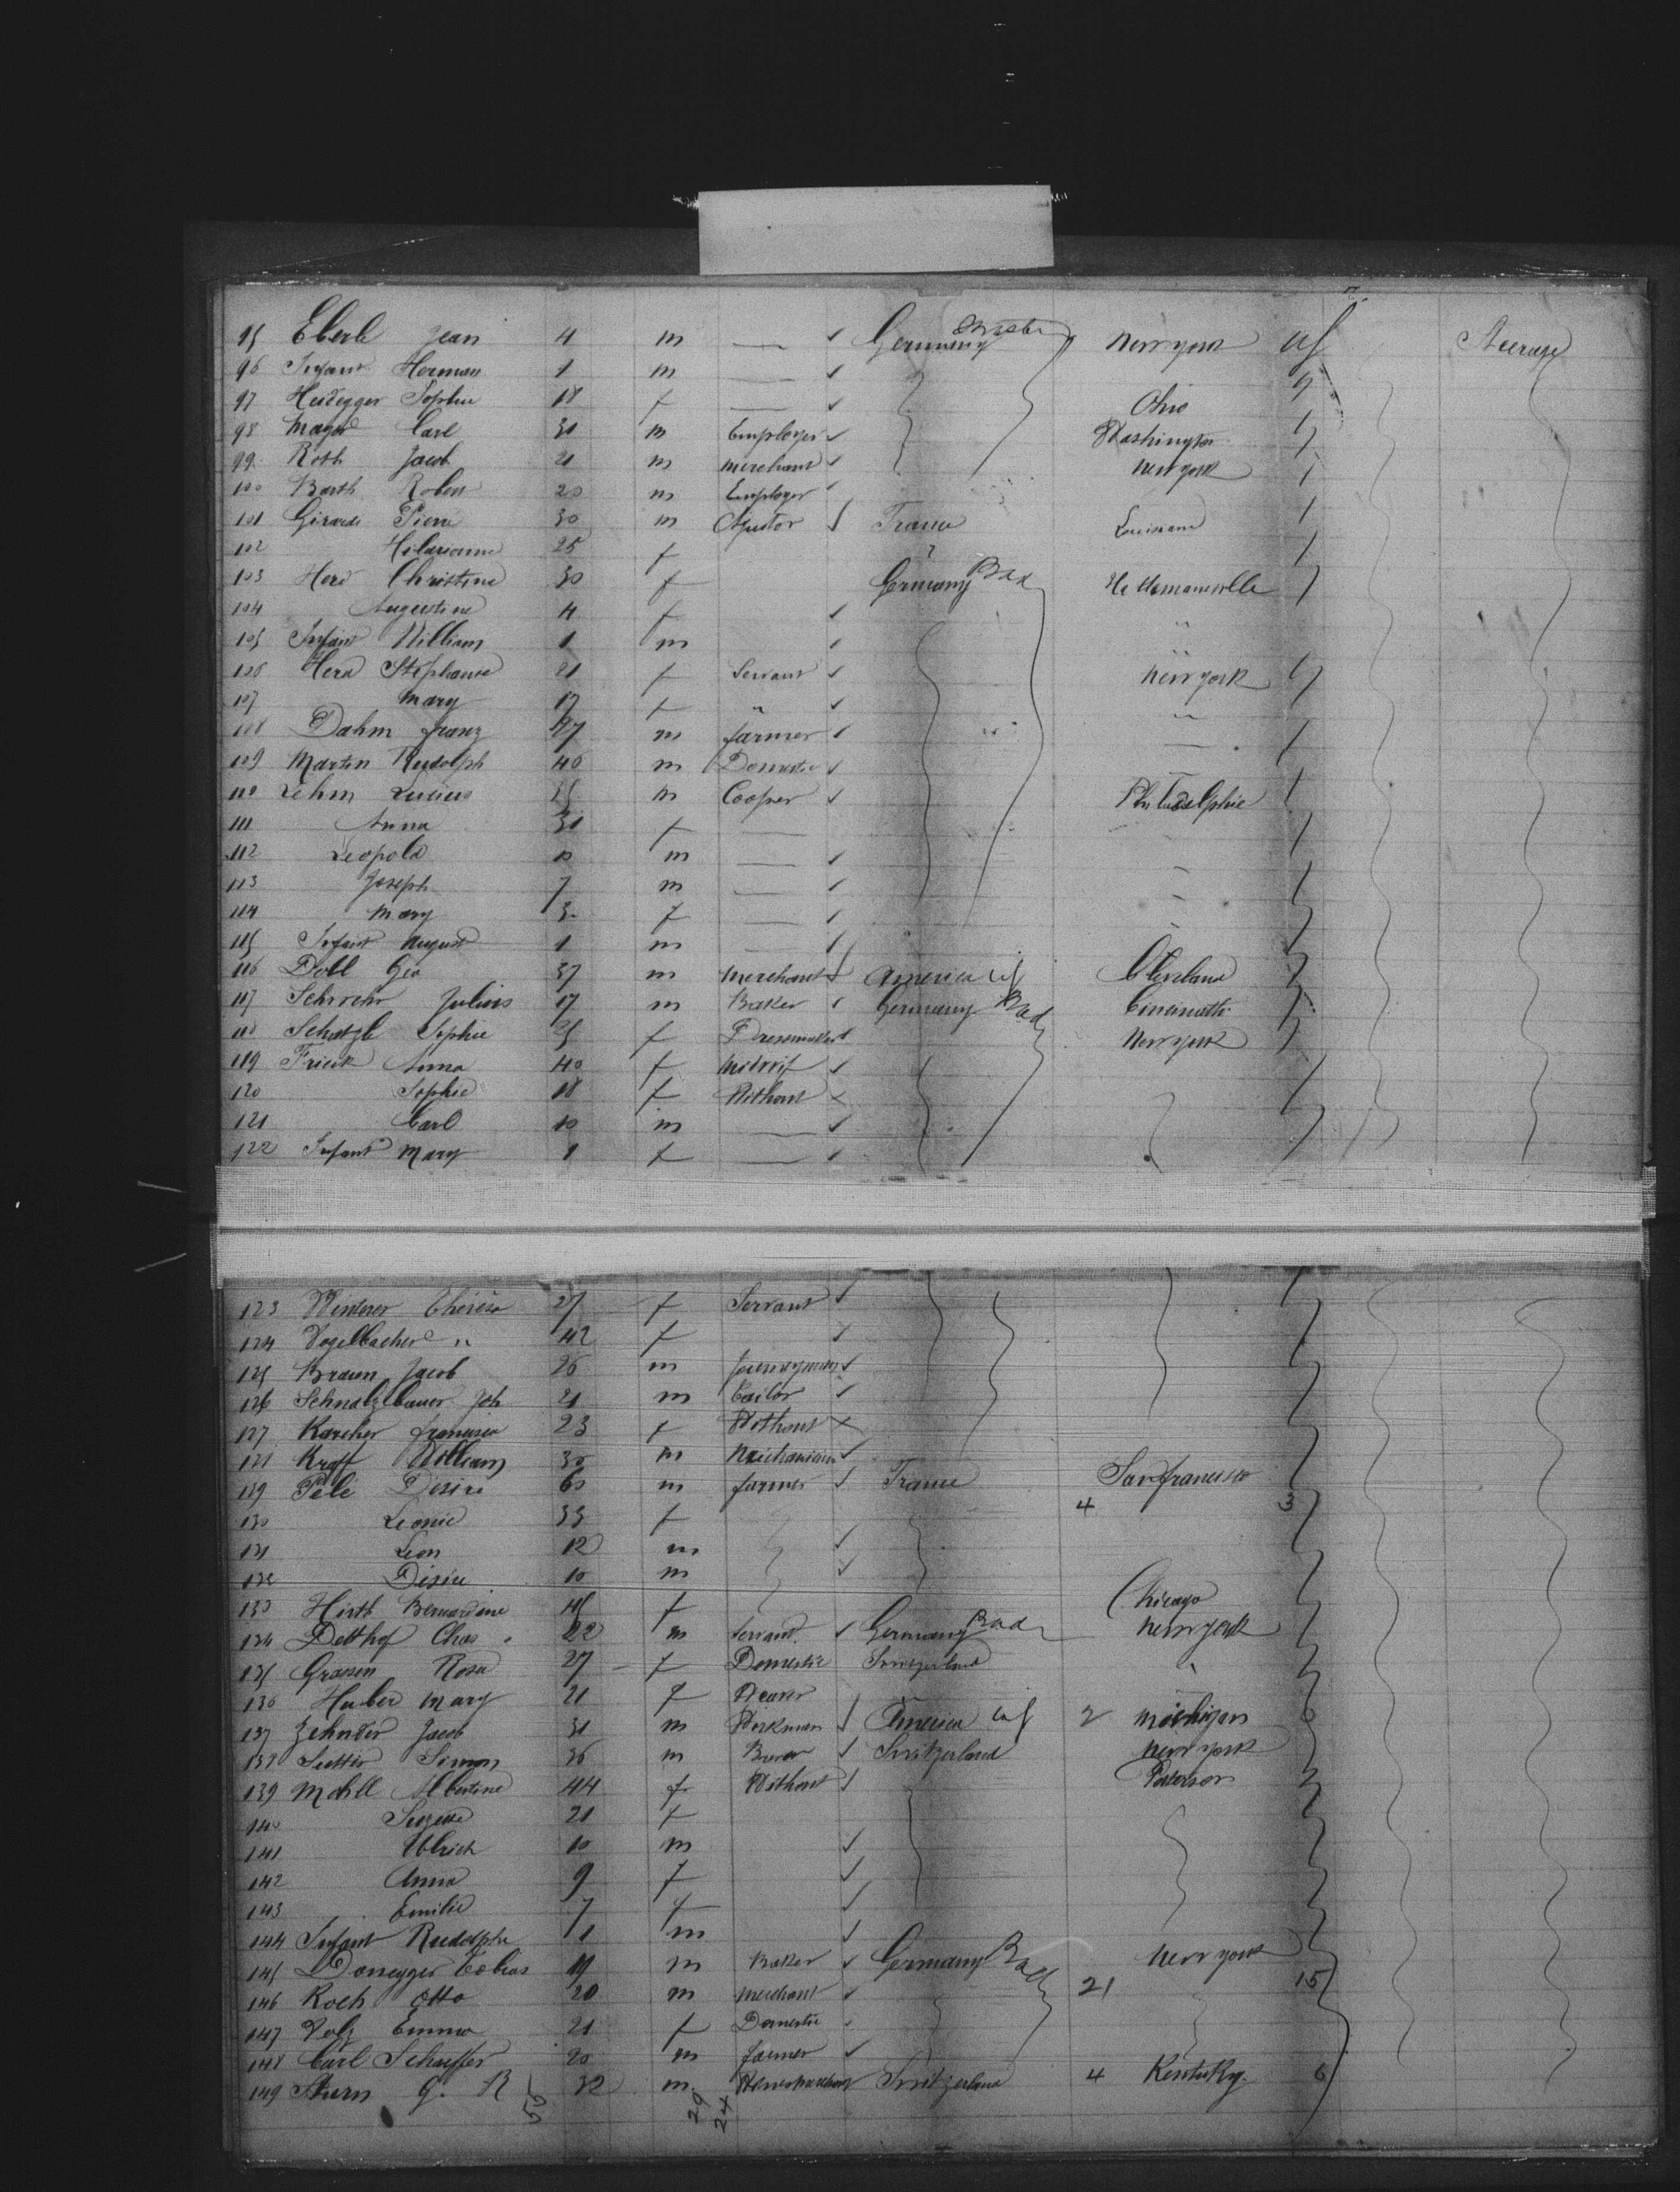 95 Eberle Jean 4 m — Germany New york Steerage
96 Infant Herman 1 m —
97 Heidegger Sophie 18 f — Ohio
98 Mayer Carl 30 m Employer Washington
99 Roth Jacob 21 m merchant new york
100 Barth Robert 20 m Employer
101 Pierre 30 m France Louisiana
102 25 f
103 Christine 30 f Germany Bad
104 Augustine 4 f
105 Infant William 1 m "
106 Stephanie 21 f Servant new york
107 Mary 17 f " "
108 Dahm franz 27 m farmer
109 Martin Rudolph 40 m Domestic
110 Lehm 35 m Cooper Philadelphie
111 Anna 31 f —
112 Leopold 10 m —
113 Joseph 7 m —
114 Mary 3 f —
115 Infant August 1 m —
116 Doll Geo 37 m merchant America Cleveland
117 Julius 17 m Baker Germany Bad Cincinnatti
118 Sophie 25 f Dressmaker New york
119 Frick Anna 40 f midwif
120 Sophie 18 f Without
121 Carl 10 m —
122 Infant Mary 1 f —
123 Therese 27 f Servant
124 Vogelbacher " 42 f
125 Braun Jacob 26 m Journeyman
126 Schnatzlbauer Joh 21 m Tailor
127 Karcher 23 f Without
128 Kraff William 30 m
129 Pele Desire 60 m farmer France San francisco
130 Leonie 33 f 4 3
131 Leon 12 m
132 Desire 10 m
133 Hirth Bernardine 45 f Chicago
134 Detthof Chas 22 m servant Germany Bad new york
135 Rosa 27 f Domestic Switzerland "
136 Huber Mary 21 f Weaver
137 Zehnder Jacob 31 m Workman America 2 Michigan
138 Sutter Simon 36 m Switzerland new york
139 Albertine 44 f Without Paterson
140 Suzette 21 f
141 Ulrich 10 m
142 Anna 9 f
143 Emilie 7 f
144 Infant Rudolphe 1 m
145 Donegger Tobias 19 m Baker Germany Bad new york
146 Koch Otto 20 m merchant 21 15
147 Volz Emma 21 f Domestic
148 Carl Schaeffer 20 m farmer
149 G. R 32 m Switzerland 4 Kentuky 6
55 29 24